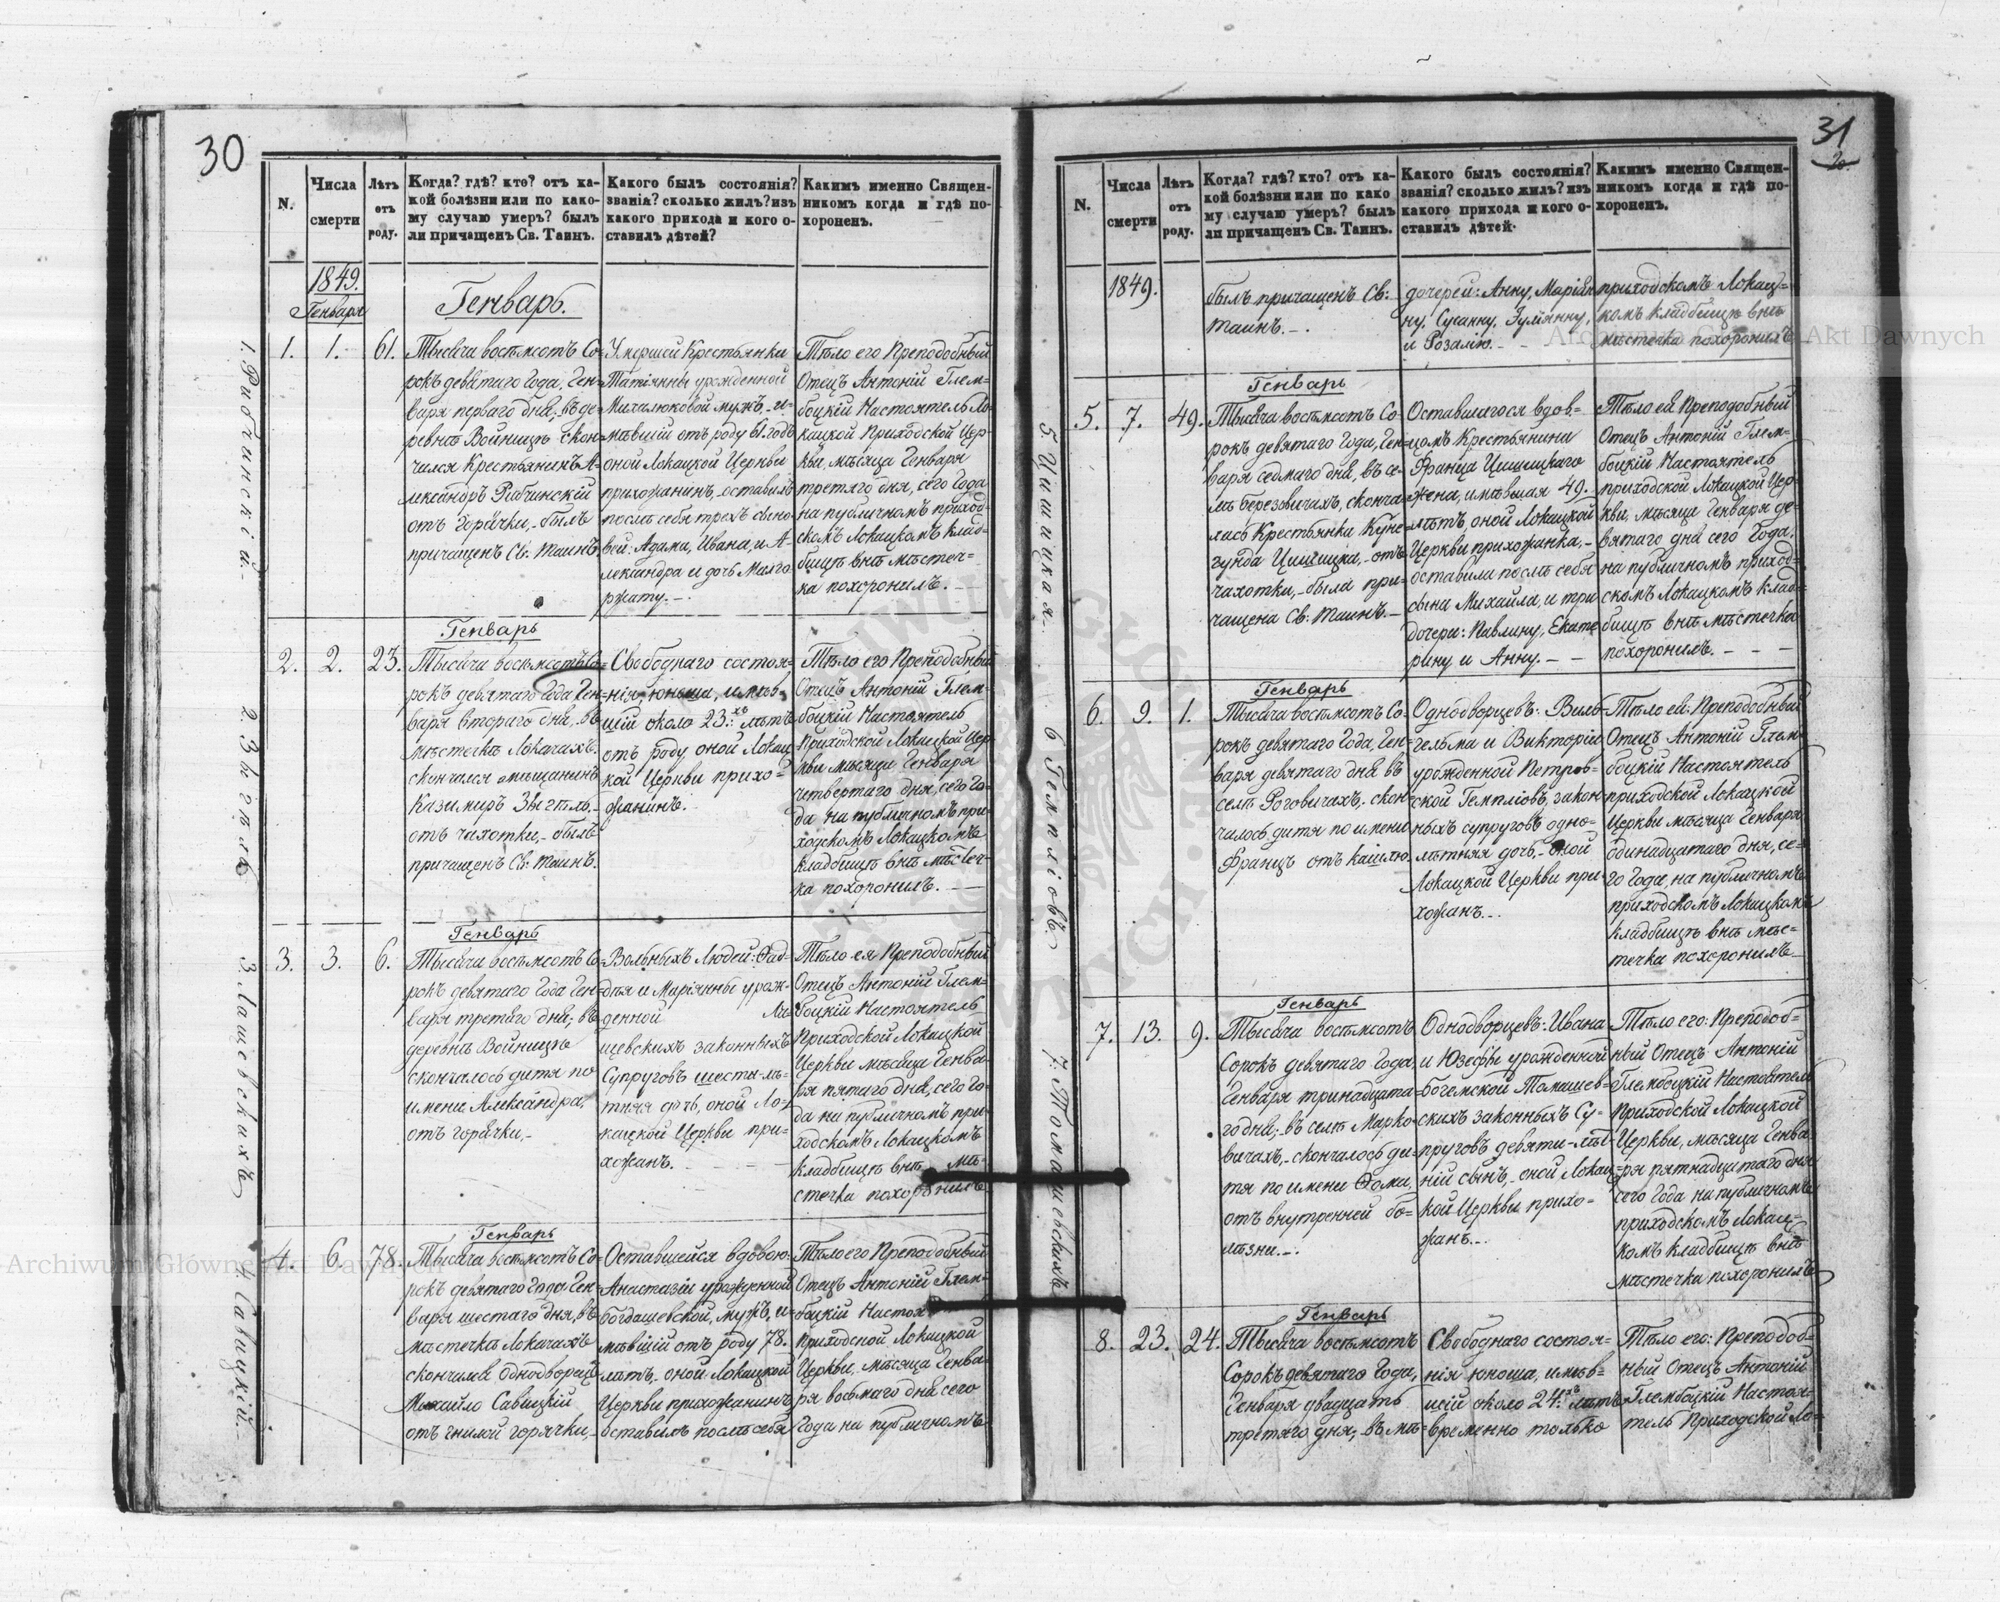 30
N.
Числа смерти
Лѣтъ отъ роду.
Когда? гдѣ? кто? отъ ка-
кой болѣзни или по како-
му случаю умеръ? былъ
ли причащенъ Св. Таинъ.
Какого былъ состоянія?
званія? сколько жилъ? изъ
какого прихода и кого о-
ставилъ дѣтей?
Какимъ именно Священ-
никомъ когда и гдѣ по-
хороненъ.
1849.
Генваря
Генварь.
1. Рабчинскій.
1.
1.
61.
Тысяча восѣмсотъ Со-
рокъ девятаго Года, Ген-
варя перваго дня, въ де-
ревнѣ Войницѣ скон-
чился Крестьянинъ А-
лександръ Рабчинскій
отъ горячки, былъ
причащенъ Св: Таинъ
Умершей Крестьянки
Татіянны урожденной
Михалюковой мужъ, и-
мѣвшій отъ роду 61 годъ
оной Локацкой Церкви
прихожанинъ, оставилъ
послѣ себя трехъ сыно-
вей: Адама, Ивана, и А-
лександра и дочь Малго-
ржату.
Тѣло его Преподобный
Отецъ Антоній Глем-
боцкій Настоятель Ло-
кацкой Приходской Цер-
кви, мѣсяца Генваря
третяго дня, сего Года
на публичномъ приход-
скомъ Локацкомъ клад-
бищѣ внѣ мѣстеч-
ка похоронилъ.
Генварь
2.
2.
23.
Тысяча восѣмсотъ Со-
рокъ девятаго Года Ген-
варя втораго дня, въ
мѣстечкѣ Локачахъ
скончался мѣщанинъ
Казимиръ Звѣгѣль
отъ чахотки, былъ
причащенъ Св: Таинъ.
Свободнаго состоя-
нія юноша, имѣв-
шій около 23:хъ лѣтъ
отъ роду оной Локац
кой Церкви прихо-
жанинъ.
Тѣло его Преподобный
Отецъ Антоній Глем-
боцкій Настоятель
Приходской Локацкой Цер-
кви мѣсяца Генваря
четвертаго дня, сего Го-
да на публичномъ при-
ходскомъ Локацкомъ
кладбищѣ внѣ мѣстеч-
ка похоронилъ.
Генварь
3. Лащевскахъ
3.
3.
6.
Тысяча восѣмсотъ Со-
рокъ девятаго Года Ген-
варя третяго дня, въ
деревнѣ Войницѣ
скончалось дитя по
имени Александра,
отъ горячки.
Вольныхъ Людей: Фад-
дѣя и Маріянны урож-
денной Ла-
щевскихъ законныхъ
Супруговъ шести-лѣ-
тняя дочь, оной Ло-
кацкой Церкви при-
хожанъ.
Тѣло ея Преподобный
Отецъ Антоній Глем-
боцкій Настоятель
Приходской Локацкой
Церкви мѣсяца Генва-
ря пятаго дня, сего Го-
да на публичномъ при-
ходскомъ Локацкомъ
кладбищѣ внѣ мѣ-
стечка похоронилъ
Генварь
4. Савицкій
4.
6.
78.
Тысяча восѣмсотъ Со-
рокъ девятаго Года, Ген-
варя шестаго дня, въ
мѣстечкѣ Локачахъ
скончался Однодворецъ
Михайло Савицкій
отъ гнилой горячки,
Оставшейся вдовою
Анастазіи урожденной
Богдашевской, мужъ, и-
мѣвшій отъ роду 78.
лѣтъ, оной Локацкой
Церкви прихожанинъ
оставилъ послѣ себя
Тѣло его Преподобный
Отецъ Антоній Глем-
боцкій Настоя
приходской Локацкой
Церкви, мѣсяца Генва-
ря восьмаго дня сего
Года на публичномъ
31
20.
N.
Числа смерти
Лѣтъ отъ роду.
Когда? гдѣ? кто? отъ ка-
кой болѣзни или по како
му случаю умеръ? былъ
ли причащенъ Св. Таинъ.
Какого былъ состоянія?
званія? сколько жилъ? изъ
какого прихода и кого о-
ставилъ дѣтей.
Какимъ именно Священ-
никомъ когда и гдѣ по-
хороненъ.
1849.
былъ причащенъ Св:
Таинъ.
дочерей: Анну, Маріян-
ну, Сусанну, Іуліянну,
и Розалію.
приходскомъ Локац-
комъ кладбищѣ внѣ
мѣстечка похоронилъ
Генварь
5. Цишицкая.
5.
7.
49.
Тысяча восѣмсотъ Со-
рокъ девятаго Года, Ген-
варя седмаго дня, въ се-
лѣ Березовичахъ, сконча-
лась Крестьянка Куне-
гунда Цишицка, отъ
чахотки, была при-
чащена Св: Таинъ.
Оставшагося вдов-
цомъ Крестьянина
Франца Цишицкаго
жена, имѣвшая 49.
лѣтъ, оной Локацкой
Церкви прихожанка,
оставила послѣ себя
сына Михайла, и три
дочери: Павлину, Екате
рину и Анну.
Тѣло ея Преподобный
Отецъ Антоній Глем-
боцкій Настоятель
приходской Локацкой Цер-
кви, мѣсяца Генваря де-
вятаго дня сего Года,
на публичномъ приход-
скомъ Локацкомъ клад-
бищѣ внѣ мѣстечка
похоронилъ.
Генварь
6 Гемпліовъ
6.
9.
1.
Тысяча восѣмсотъ Со-
рокъ девятаго Года, Ген-
варя девятаго дня въ
селѣ Роговичахъ, скон
чалось дитя по имени
Францъ отъ кашлю
Однодворцевъ: Виль-
гельма и Викторіи
урожденной Петров-
ской Гемпліовъ, закон
ныхъ супруговъ одно-
лѣтняя дочь, оной
Локацкой Церкви при-
хожанъ.
Тѣло ея Преподобный
Отецъ Антоній Глем-
боцкій Настоятель
приходской Локацкой
Церкви мѣсяца Генваря
одинадцатаго дня, се-
го Года, на публичномъ
приходскомъ Локацкомъ
кладбищѣ внѣ мѣс-
течка похоронилъ
Генварь
7. Томашевскихъ
7.
13.
9.
Тысяча восѣмсотъ
Сорокъ девятаго Года,
Генваря тринадцата-
го дня, въ селѣ Марко-
вичахъ, скончалось ди-
тя по имени Фома,
отъ внутренней бо-
лѣзни.
Однодворцевъ: Ивана
и Юзефы урожденной
Богемской Томашев-
скихъ законныхъ Су-
пруговъ девяти-лѣт-
ній сынъ, оной Локац-
кой Церкви прихо-
жанъ.
Тѣло его: Преподоб-
ный Отецъ Антоній
Глембоцкій Настоятель
Приходской Локацкой
Церкви, мѣсяца Генва-
ря пятнадцатаго дня
сего Года на публичномъ
приходскомъ Локац-
комъ кладбищѣ внѣ
мѣстечка похоронилъ
Генварь
8.
23.
24.
Тысяча восѣмсотъ
Сорокъ девятаго Года,
Генваря двадцать
третяго дня, въ мѣ-
Свободнаго состоя-
нія юноша, имѣв-
шій около 24.хъ лѣтъ
временно только
Тѣло его: Преподоб-
ный Отецъ Антоній
Глембоцкій Настоя-
тель Приходской Ло-
Archiwum Główne Akt Dawnych
Archiwum Główne Akt Dawnych